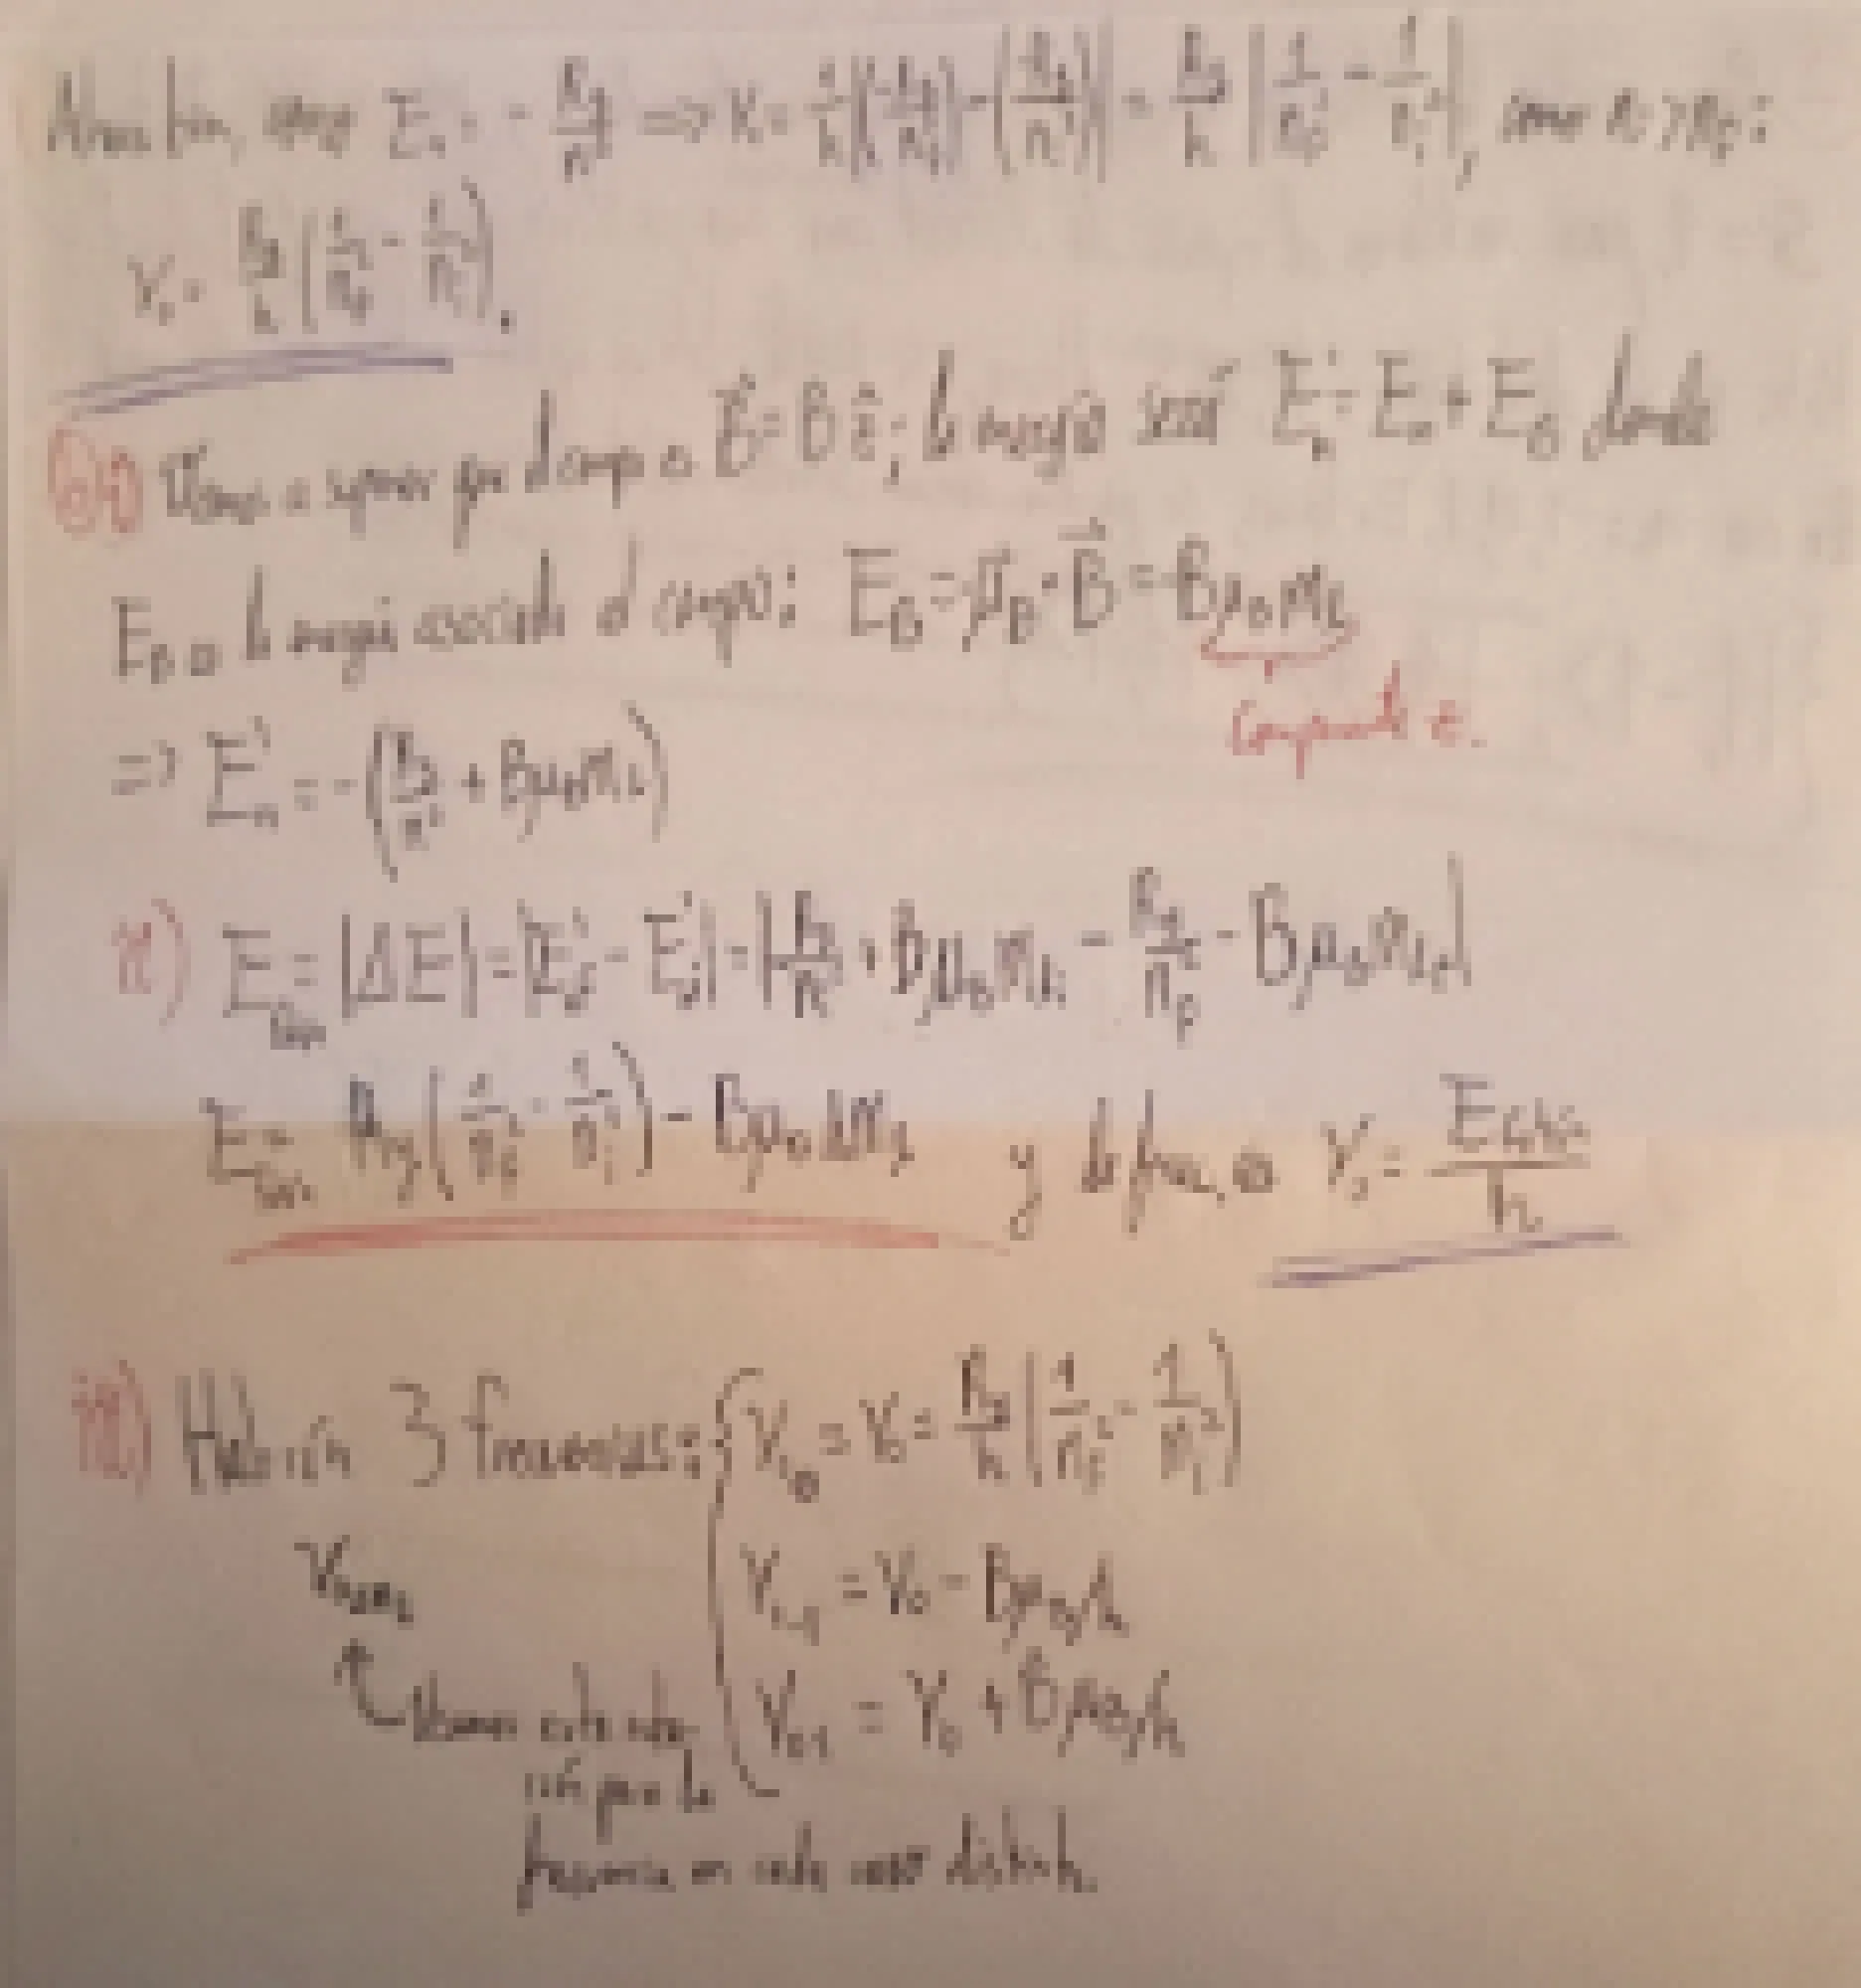 Ahora bien, como E_n = - Ry/n² ⇒ ν = 1/h |(-Ry/n_f²) - (-Ry/n_i²)| = Ry/h |1/n_f² - 1/n_i²|, como n_i > n_f:
ν_0 = Ry/h (1/n_f² - 1/n_i²).
b) i) Vamos a suponer que el campo es B = B ẑ; la energía será E'_n = E_n + E_B donde
E_B es la energía asociada al campo: E_B = -μ_B · B = -B μ_B m_L
componente z.
⇒ E'_n = -(Ry/n² + Bμ_B m_L)
ii) E = |ΔE| = |E'_f - E'_i| = |Ry/n_i² + Bμ_B m_Li - Ry/n_f² - Bμ_B m_Lf|
E = Ry (1/n_f² - 1/n_i²) - Bμ_B Δm_L y la frec. es ν = E/h
iii) Habrán 3 frecuencias: ν_0 = ν_0 = Ry/h (1/n_f² - 1/n_i²)
ν = ν_0 - Bμ_B/h
ν = ν_0 + Bμ_B/h
para la
frecuencia en cada caso